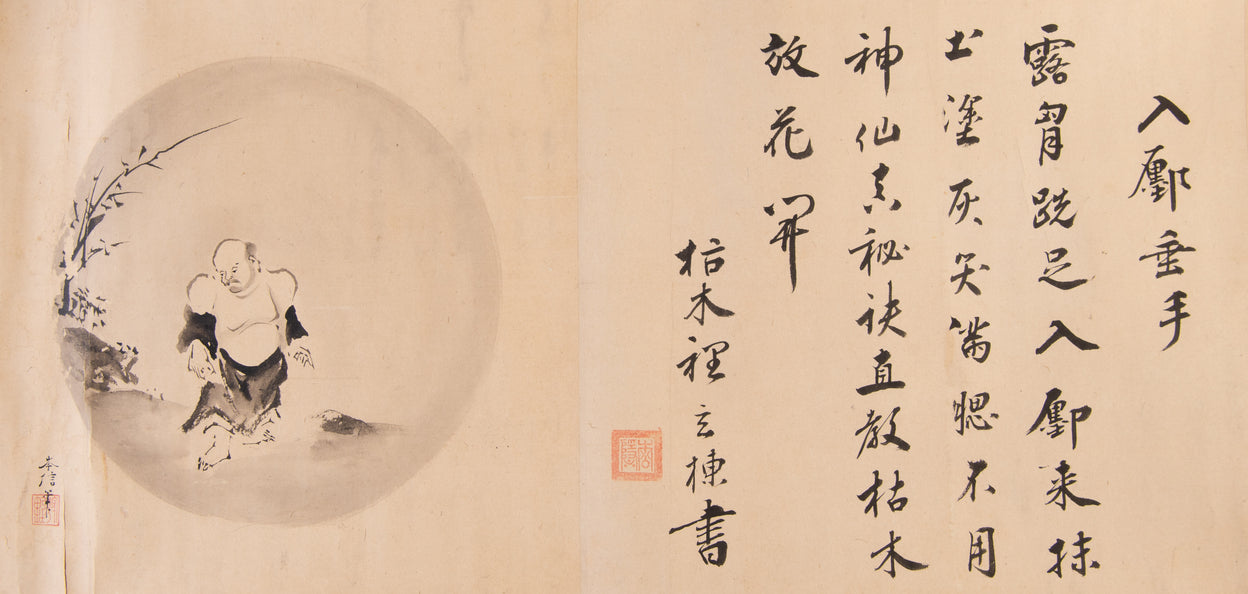 入鄽垂手
露胷跣足入鄽来抹
土塗灰笑満腮不用
神仙真秘訣直教枯木
放花開
枯木裡玄棟書
信筆